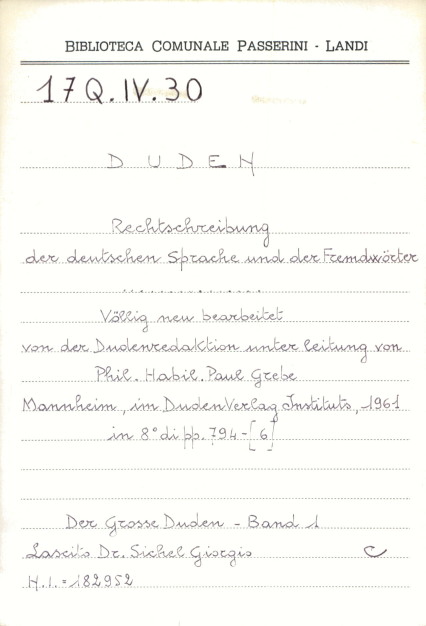 BIBLIOTECA COMUNALE PASSERINI - LANDI
17Q.IV.30
DUDEN
Rechtschreibung
der deutschen Sprache und der Fremdwörter
..............
Völlig neu bearbeitet
von der Dudenredaktion unter leitung von
Phil. Habil. Paul Grebe
Mannheim, im DudenVerlag Instituts, 1961
in 8° di pp. 794-[6]
Der Grosse Duden - Band 1
Lascito Dr. Sichel Giorgio C
H.I. = 182952